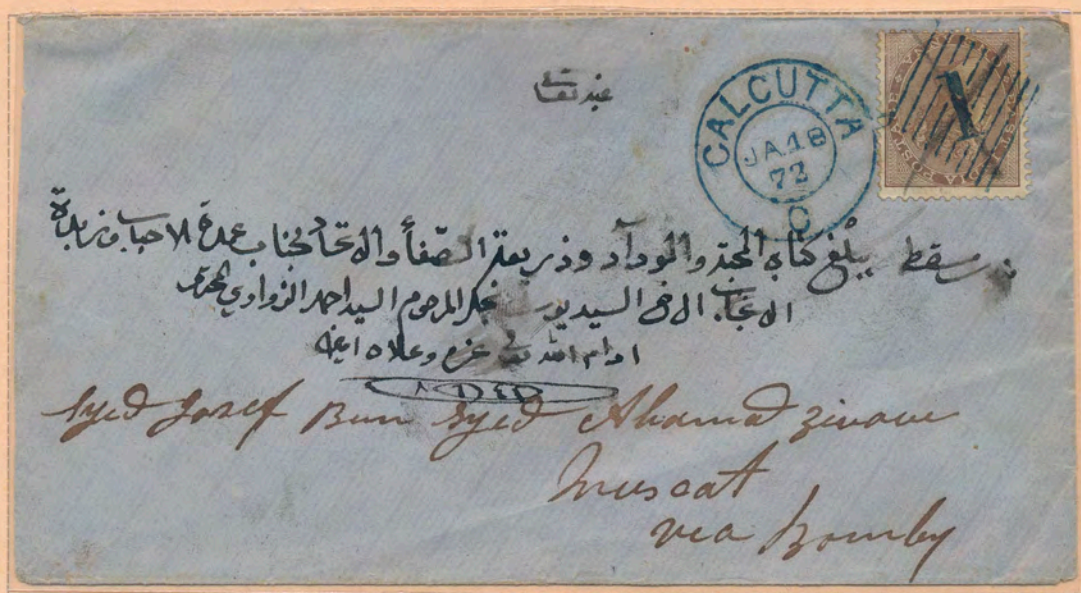 CALCUTTA
JA 18
72
C
1
مسقط يبلغ كتاب المحبة والوداد وذريعة الصفأ والاتحاد لجناب عمدة الاحباب وزبدة
الانجاب الاخ السيد يوسف نجل المرحوم السيد احمد الزواوي المحترم
ادام الله عزه وعلاه امين
٨٦٤٢
Syed Josef Bun Syed Ahamad zivave
Muscat
via Bomby